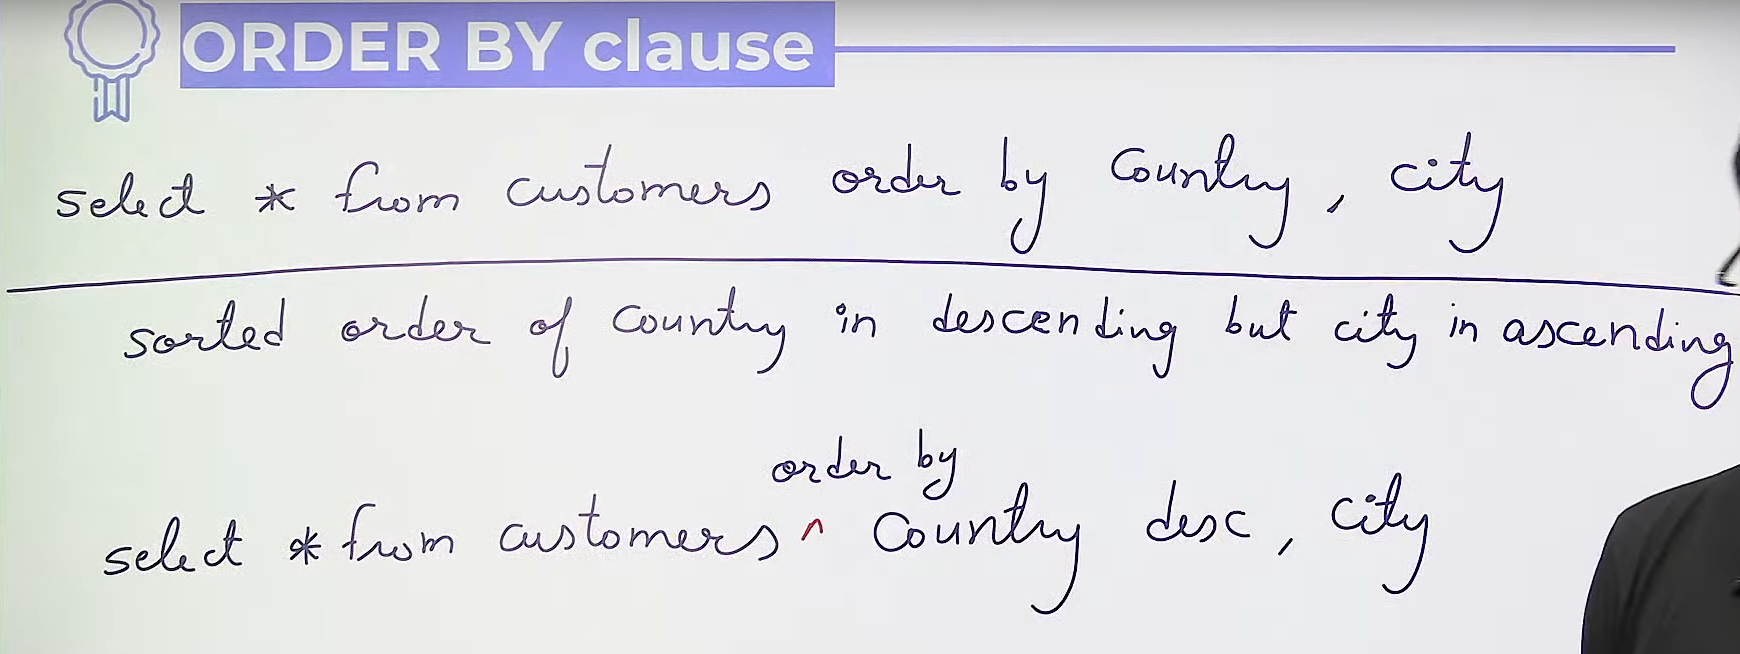 ORDER BY clause
select * from customers order by Country, city
sorted order of Country in descending but city in ascending
order by
select * from customers ^ Country desc, city